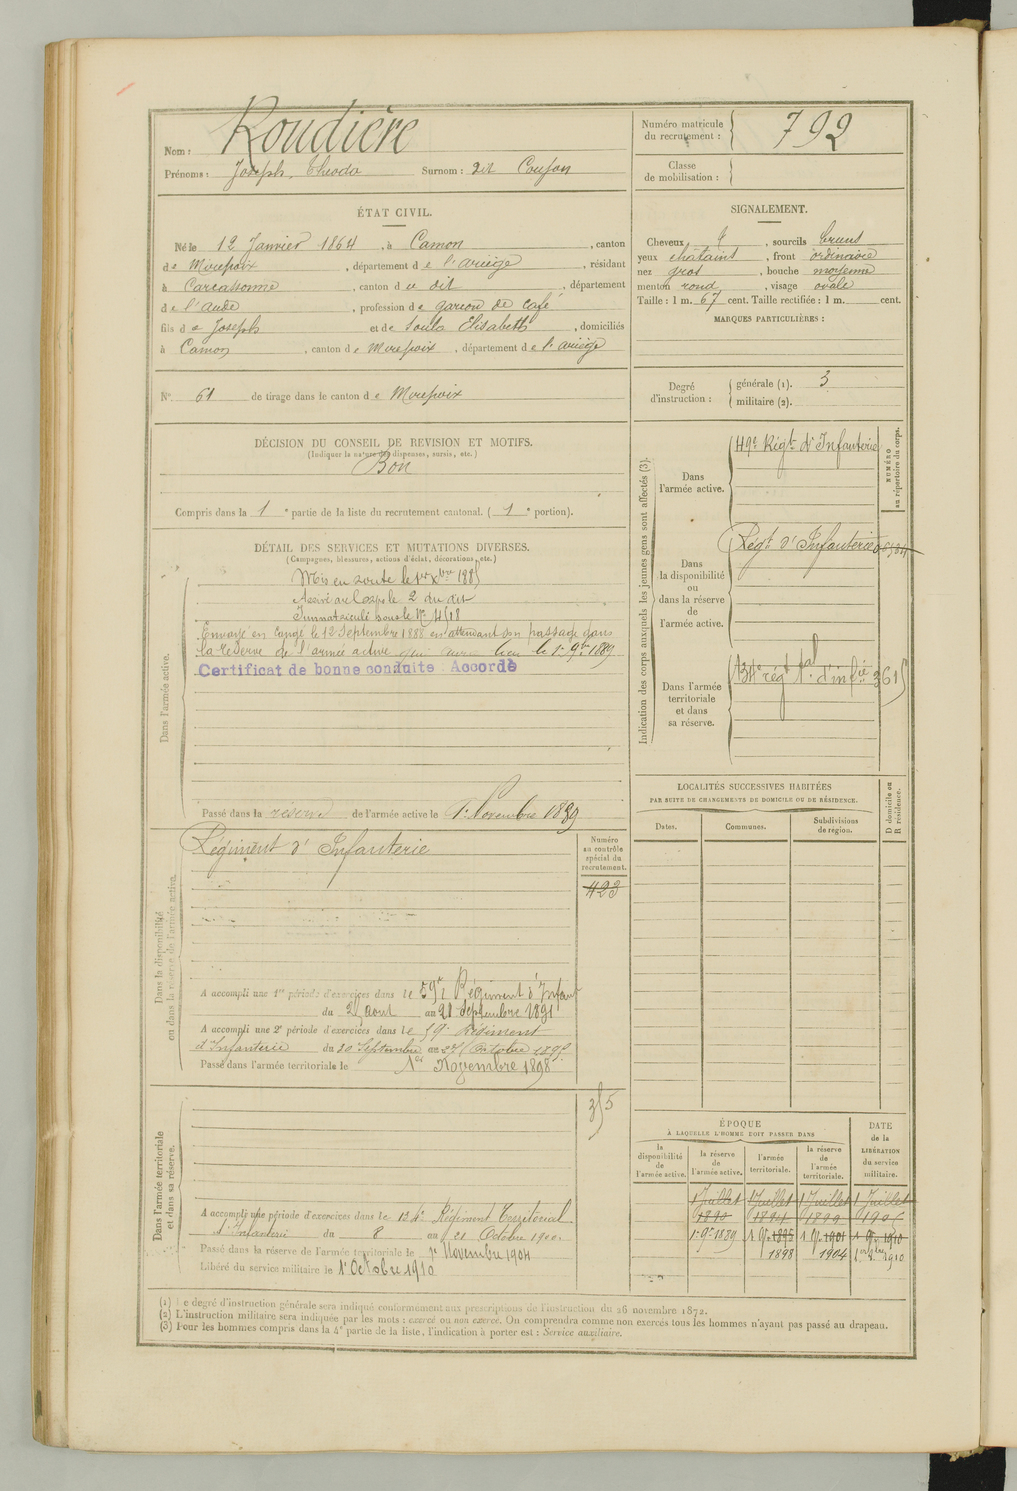 Nom : Roudière
Prénoms : Joseph, Théodo Surnom : dit Coufon
Numéro matricule du recrutement : 792
Classe de mobilisation :
ÉTAT CIVIL.
Né le 12 Janvier 1864, à Camon, canton
de Mirepoix, département de l'ariège, résidant
à Carcassonne, canton du dit, département
de l'aude, profession de garcon de café
fils de Joseph et de Soula Elisabeth, domiciliés
à Camon, canton de Mirepoix, département de l'ariège
SIGNALEMENT.
Cheveux, sourcils bruns
yeux chatains, front ordinaire
nez gros, bouche moyenne
menton rond, visage ovale
Taille : 1 m. 67 cent. Taille rectifiée : 1 m. cent.
MARQUES PARTICULIÈRES :
N° 61 de tirage dans le canton de Mirepoix
Degré d'instruction : générale (1). 3
militaire (2).
DÉCISION DU CONSEIL DE REVISION ET MOTIFS.
(Indiquer la nature des dispenses, sursis, etc.)
Bon
Compris dans la 1e partie de la liste du recrutement cantonal. (1e portion).
DÉTAIL DES SERVICES ET MUTATIONS DIVERSES.
(Campagnes, blessures, actions d'éclat, décorations, etc.)
Dans l'armée active.
Mis en route le 1er Xbre 1885
Arrivé au Corps le 2 du dit
Immatriculé sous le N° 4518
Envoyé en congé le 12 Septembre 1888 en attendant son passage dans
la réserve de l'armée active qui aura lieu le 1er 9bre 1889
Certificat de bonne conduite Accordé
Passé dans la réserve de l'armée active le 1er Novembre 1889
Indication des corps auxquels les jeunes gens sont affectés (3).
NUMÉRO au répertoire du corps.
Dans l'armée active.
49e Régt d'Infanterie
Dans la disponibilité ou dans la réserve de l'armée active.
Régt d'Infanterie
Dans l'armée territoriale et dans sa réserve.
134e régt tal d'infie 3615
LOCALITÉS SUCCESSIVES HABITÉES
PAR SUITE DE CHANGEMENTS DE DOMICILE OU DE RÉSIDENCE.
Dates. Communes. Subdivisions de région. D domicile ou R résidence.
Dans la disponibilité ou dans la réserve de l'armée active.
Régiment d'Infanterie
Numéro au contrôle spécial du recrutement.
423
A accompli une 1re période d'exercices dans le 59e Régiment d'Infant
du 25 aout au 21 Septembre 1891
A accompli une 2e période d'exercices dans le 59e Régiment
d'Infanterie du 30 Septembre au 27 Octobre 1895
Passé dans l'armée territoriale le 1er Novembre 1898
Dans l'armée territoriale et dans sa réserve.
A accompli une période d'exercices dans le 134e Régiment Territorial
d'Infanterie du 8 au 21 Octobre 1900
Passé dans la réserve de l'armée territoriale le 1er Novembre 1904
Libéré du service militaire le 1er Octobre 1910
ÉPOQUE
À LAQUELLE L'HOMME DOIT PASSER DANS
DATE de la LIBÉRATION du service militaire.
la disponibilité de l'armée active. la réserve de l'armée active. l'armée territoriale. la réserve de l'armée territoriale.
1 Juillet 1 Juillet 1 Juillet 1 Juillet
1890 1894 1899 1905
1er 9e 1889 1 9e 1895 1 9e 1901 1 9e 1910
1898 1904 1er 8bre 1910
(1) Le degré d'instruction générale sera indiqué conformément aux prescriptions de l'instruction du 26 novembre 1872.
(2) L'instruction militaire sera indiquée par les mots : exercé ou non exercé. On comprendra comme non exercés tous les hommes n'ayant pas passé au drapeau.
(3) Pour les hommes compris dans la 4e partie de la liste, l'indication à porter est : Service auxiliaire.